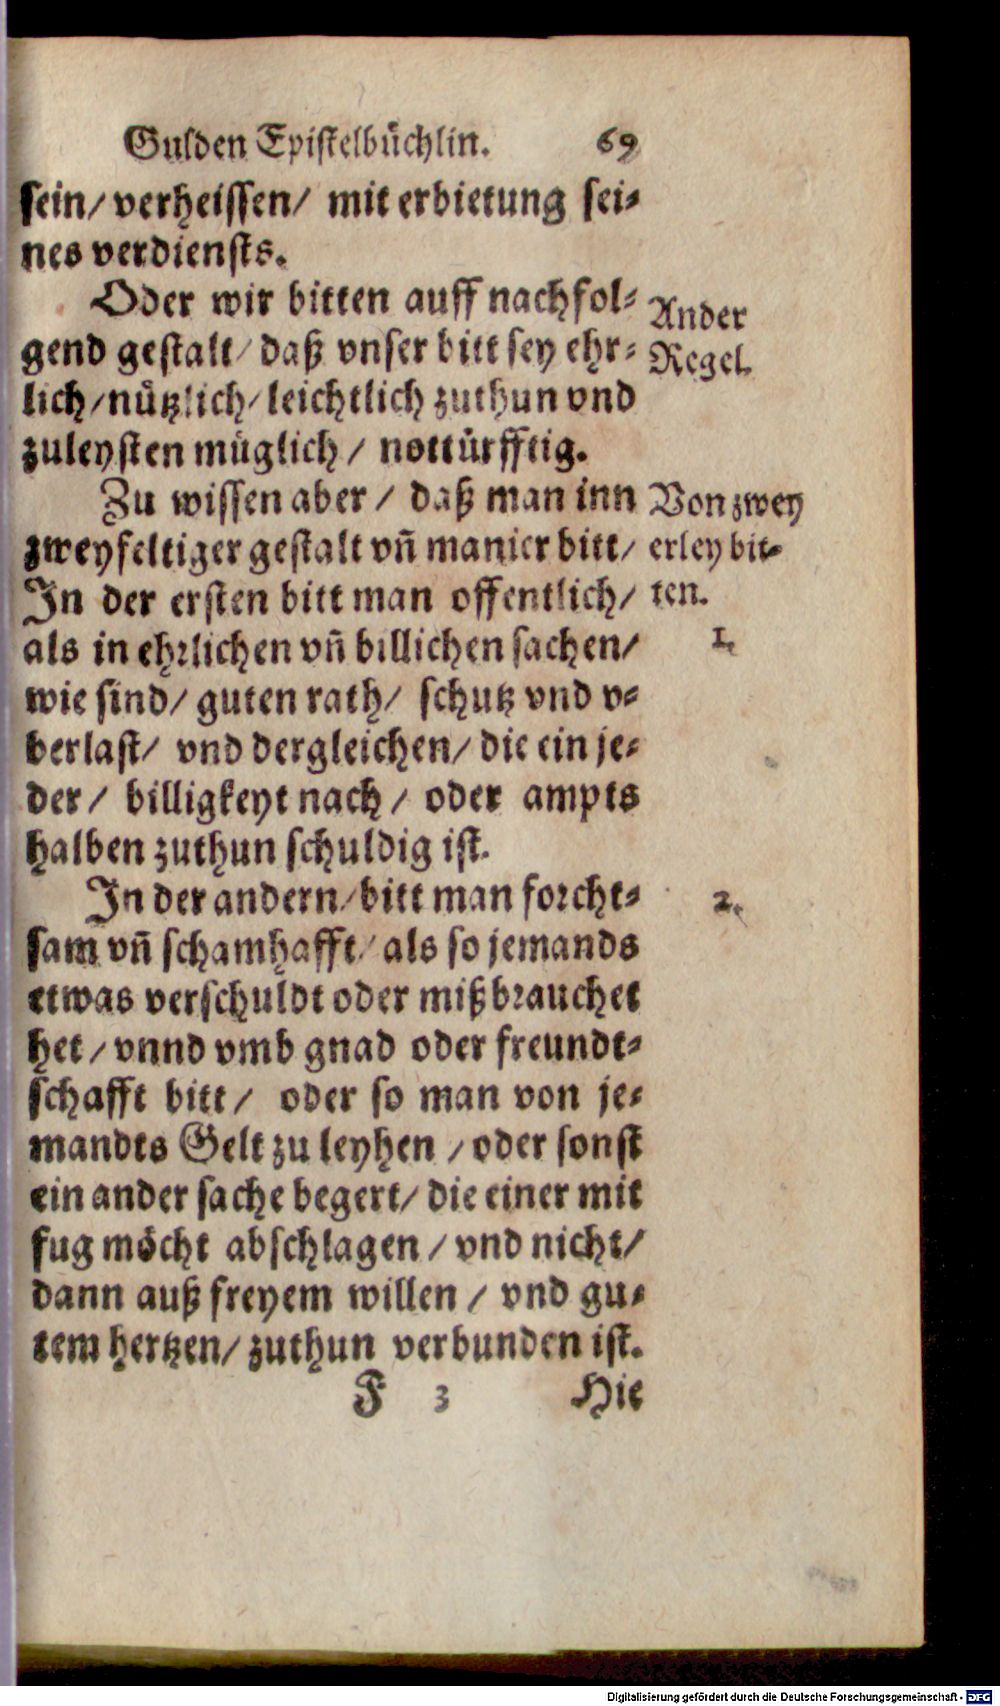 Gulden Epistelbüchlin. 69
sein/ verheissen/ mit erbietung sei-
nes verdiensts.
Oder wir bitten auff nachfol-
gend gestalt/ daß vnser bitt sey ehr-
lich/nützlich/leichtlich zuthun vnd
zuleysten müglich/ nottürfftig.
Ander
Regel.
Zu wissen aber/ daß man inn
zweyfeltiger gestalt vñ manier bitt/
In der ersten bitt man offentlich/
als in ehrlichen vñ billichen sachen/
wie sind/ guten rath/ schutz vnd v-
berlast/ vnd dergleichen/ die ein je-
der/ billigkeyt nach/ oder ampts
halben zuthun schuldig ist.
Von zwey
erley bit-
ten.
1.
In der andern/bitt man forcht-
sam vñ schamhafft/ als so jemands
etwas verschuldt oder mißbrauchet
het/ vnnd vmb gnad oder freundt-
schafft bitt/ oder so man von je-
mandts Gelt zu leyhen/oder sonst
ein ander sache begert/ die einer mit
fug möcht abschlagen/vnd nicht/
dann auß freyem willen/ vnd gu-
tem hertzen/ zuthun verbunden ist.
2.
F 3 Hie
Digitalisierung gefördert durch die Deutsche Forschungsgemeinschaft - DFG